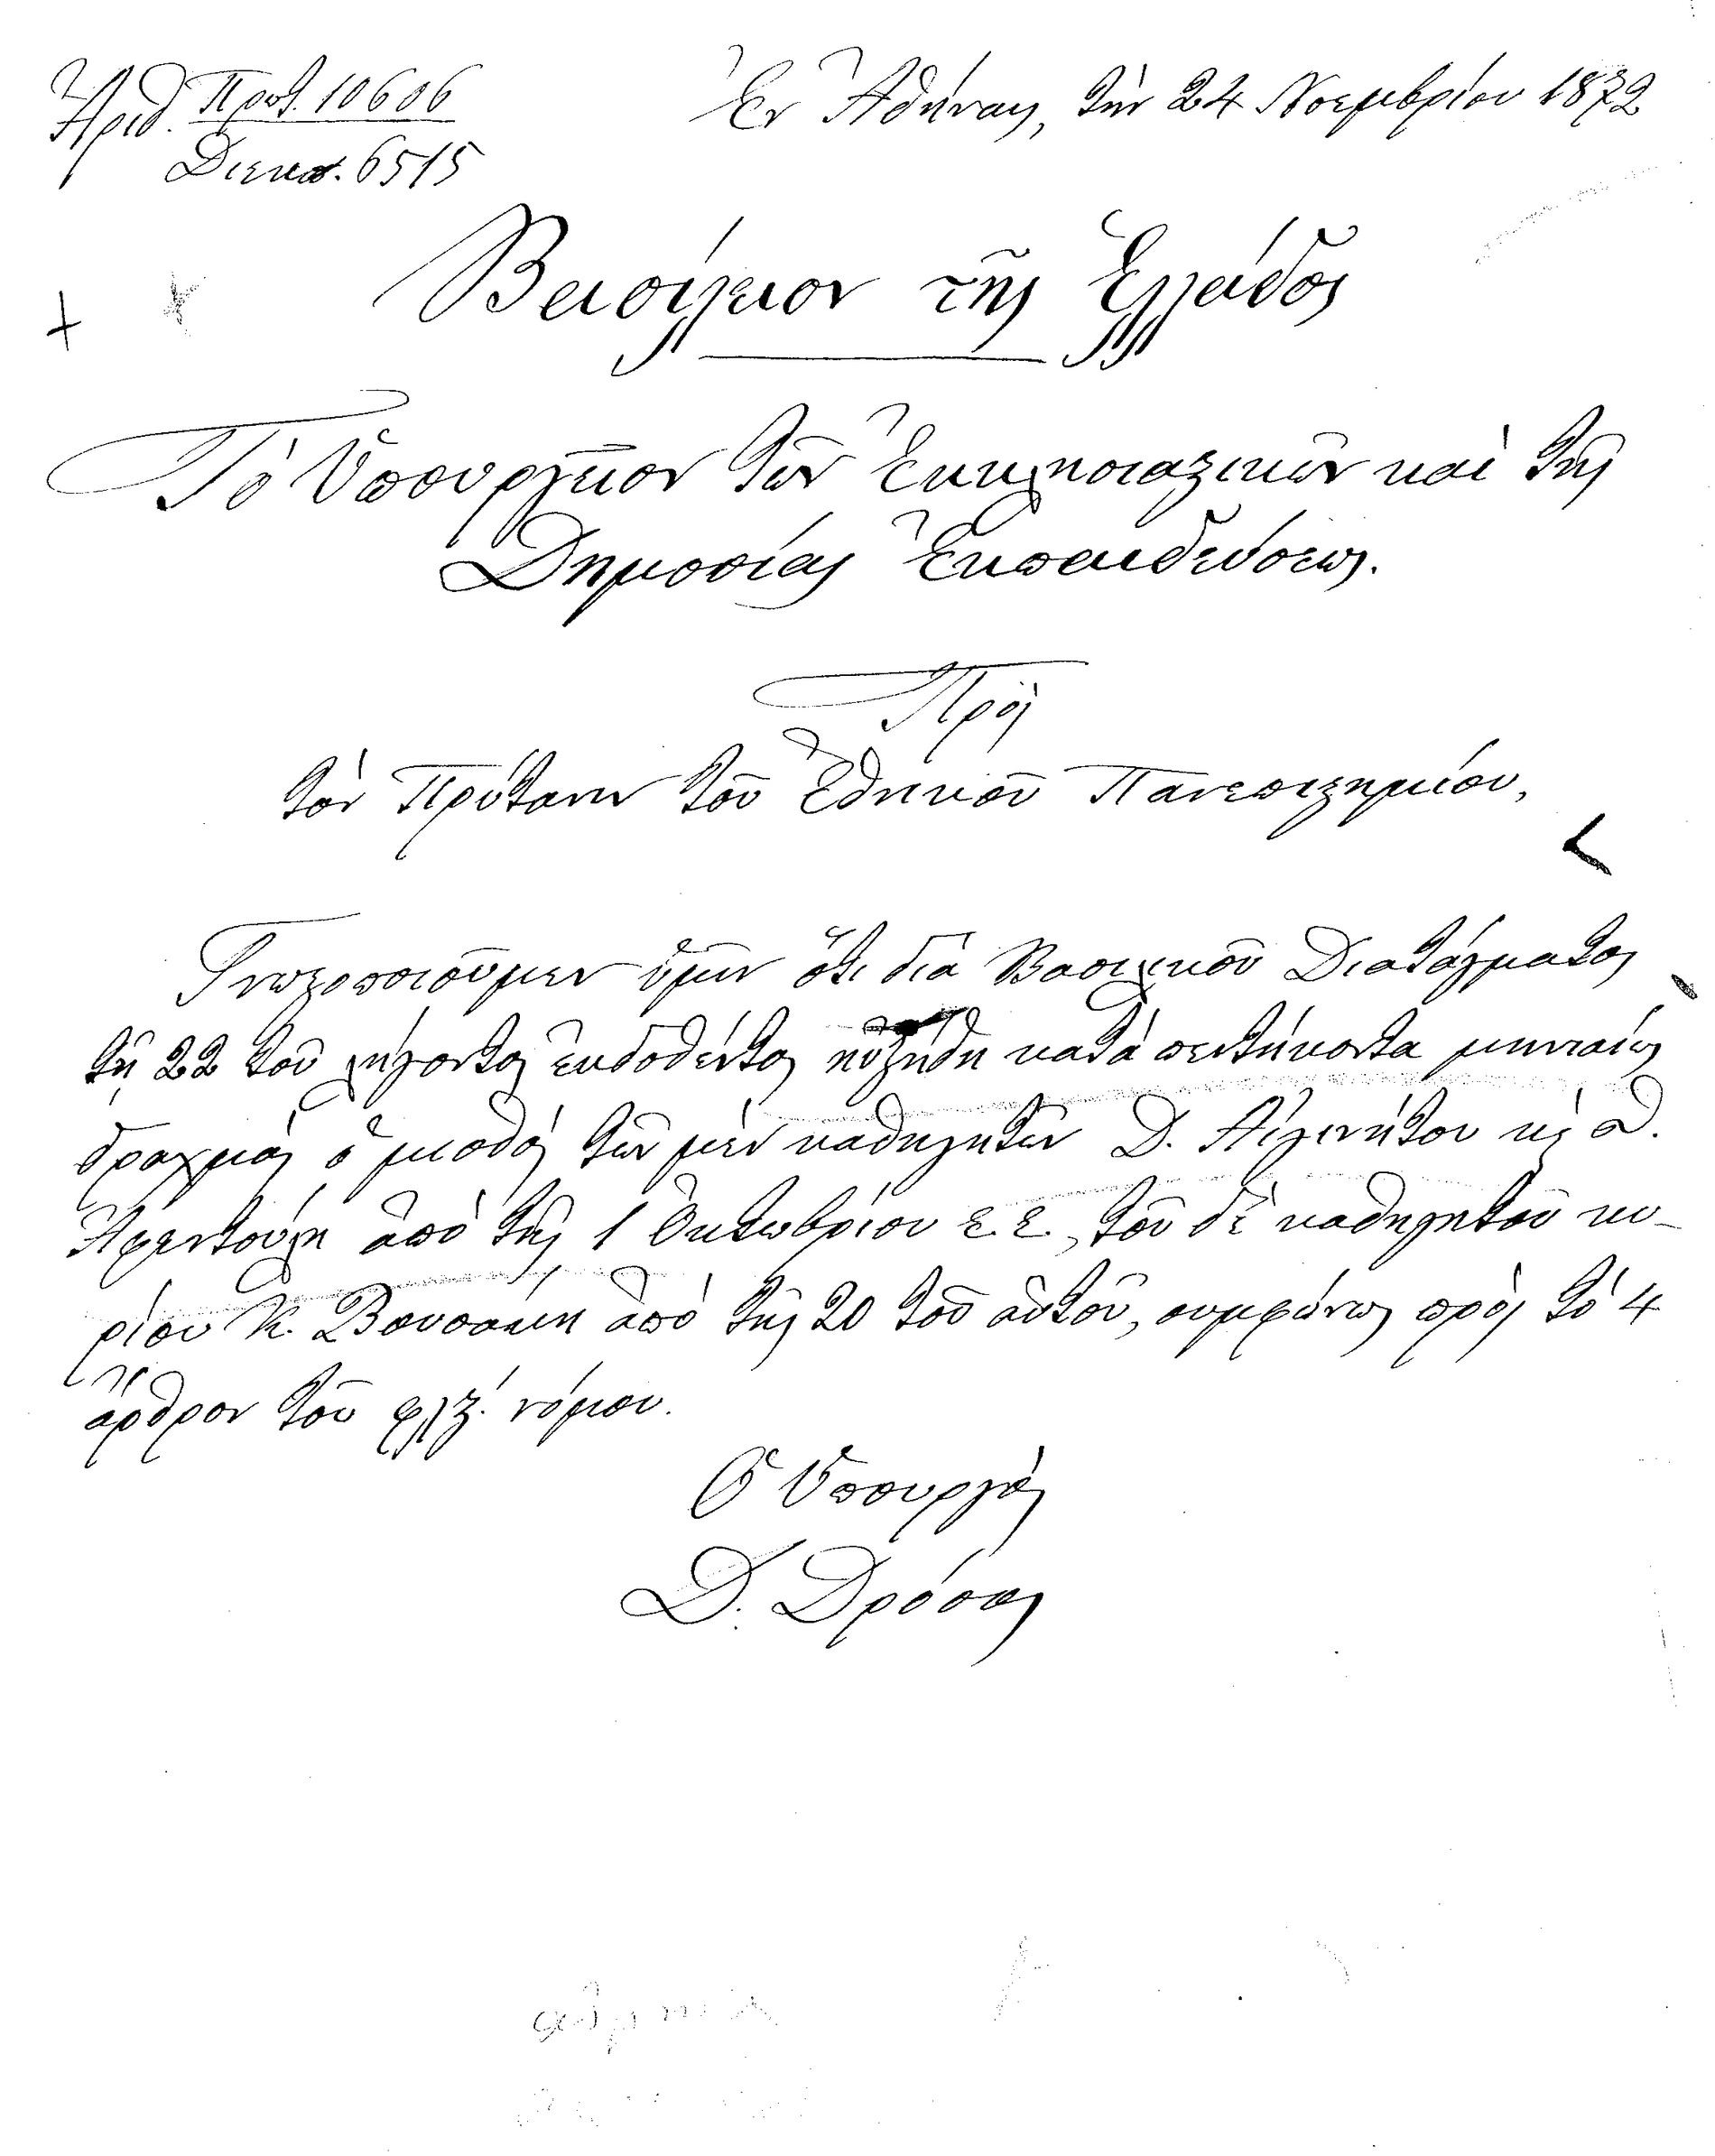 Ἀριθ. Πρωτ. 10606
Διεκπ. 6515
Ἐν Ἀθήναις, τὴν 24 Νοεμβρίου 1872
Βασίλειον τῆς Ἑλλάδος
Τὸ Ὑπουργεῖον τῶν Ἐκκλησιαστικῶν καὶ τῆς
Δημοσίας Ἐκπαιδεύσεως.
Πρὸς
τὸν Πρύτανιν τοῦ Ἐθνικοῦ Πανεπιστημίου,
Γνωστοποιοῦμεν ὑμῖν ὅτι διὰ Βασιλικοῦ Διατάγματος
τῇ 22 τοῦ λήγοντος ἐκδοθέντος ηὐξήθη κατὰ πεντήκοντα μηνιαίως
δραχμὰς ὁ μισθὸς τῶν μὲν καθηγητῶν Δ. Αἰγινήτου κὲ Θ.
Ἀφεντούλη ἀπὸ τῆς 1 Ὀκτωβρίου ἐ.ἔ., τοῦ δὲ καθηγητοῦ κυ-
ρίου Κ. Βουσάκη ἀπὸ τῆς 20 τοῦ αὐτοῦ, συμφώνως πρὸς τὸ 4
ἄρθρον τοῦ φλζ΄. νόμου.
Ὁ Ὑπουργὸς
Δ. Δρόσος